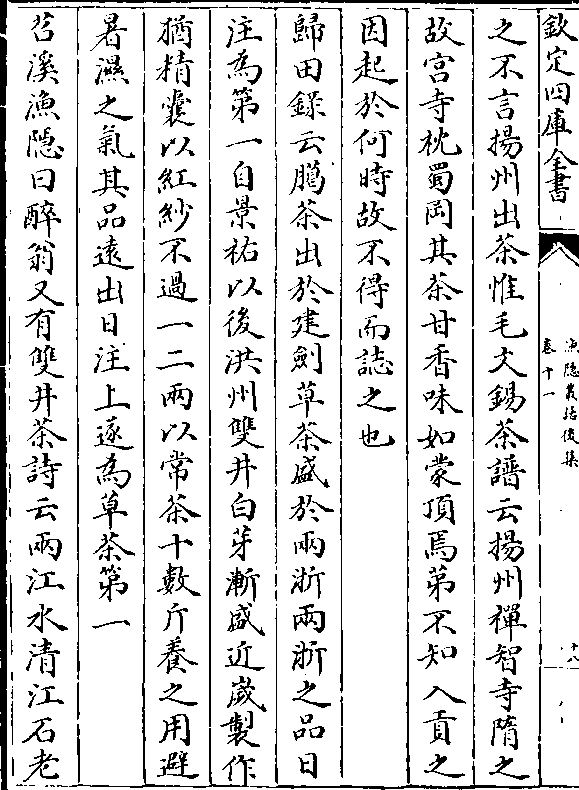 欽定四庫全書
漁隱叢話後集
卷十一
十八
之不言揚州出茶惟毛文錫茶譜云揚州禪智寺隋之
故宮寺枕蜀岡其茶甘香味如蒙頂焉第不知入貢之
因起於何時故不得而誌之也
歸田錄云臈茶出於建劍草茶盛於兩浙兩浙之品日
注為第一自景祐以後洪州雙井白芽漸盛近嵗製作
猶精囊以紅紗不過一二兩以常茶十數斤養之用避
暑濕之氣其品遠出日注上遂為草茶第一
苕溪漁隱曰醉翁又有雙井茶詩云兩江水清江石老